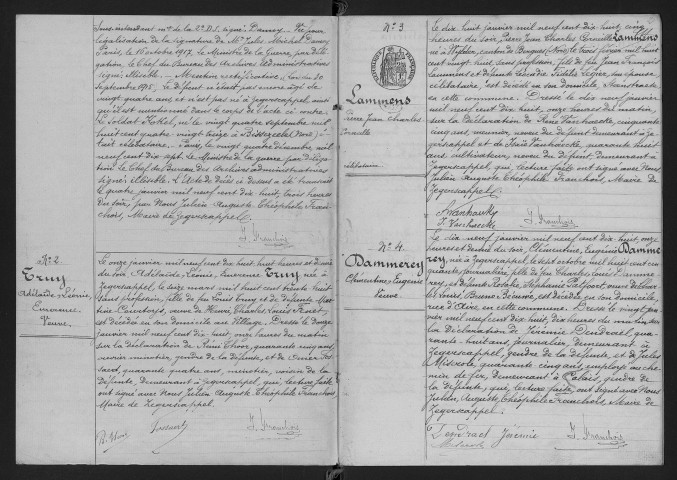 Sous intendant mre de la 2e D.S. signé: Dausy. Vu pour
légalisation de la signature de Mr Jules Michel Dausy
Paris, le 16 octobre 1917, le Ministre de la Guerre, par délé-
gation, le Chef du Bureau des Archives Administratives
signé: illisible. Mention rectificative Loi du 30
Septembre 1915. Le défunt n'était pas encore âgé de
vingt quatre ans et n'est pas né à Zegerscappel, ainsi
qu'il est mentionné dans le corps de l'acte ci contre:
le soldat Hekel, né le vingt quatre septembre mil
huit cent quatre vingt treize à Bissezeele (Nord),
était célibataire. Paris, le vingt quatre décembre mil
neuf cent dix sept, le Ministre de la guerre par délega-
tion le Chef du Bureau des archives administratives
signé: illisible. L'acte de décès ci dessus a été transcrit
le quatre janvier mil neuf cent dix huit, trois heures
du soir, par Nous Julien Auguste Théophile Fran-
chois, Maire de Zegerscappel.
J. Franchois
No 2
Truy
Adélaïde Léonie,
Emerence
Veuve.
Le onze janvier mil neuf cent dix huit, huit heures et demie
du soir Adélaïde Léonie, Emerence Truy née à
Zegerscappel, le seize mars mil huit cent trente huit
sans profession, fille de feu Louis Truy et de défunte Mar-
tine Courtois, veuve de Henri, Charles, Louis Fenet
est décédée en son domicile au Village. Dressé le douze
janvier mil neuf cent dix huit, neuf heures du matin
sur la déclaration de Rémi Thore, quarante cinq ans,
ouvrier meunier, gendre de la défunte, et de Omer Jos-
saert, quarante quatre ans, menuisier, voisin de la
défunte, demeurant à Zegerscappel, qui, lecture faite
ont signé avec Nous Julien Auguste Théophile Franchois
Maire de Zegerscappel.
R. Thore Jossaert J. Franchois
No 3
Lammens
Pierre Jean Charles
Corneille
célibataire
Le dix huit janvier mil neuf cent dix huit, cinq
heures du soir, Pierre Jean Charles Corneille Lammens
né à Wylder, canton de Bergues (Nord) le trois février mil huit
cent vingt huit, sans profession, fils de feu Jean François
Lammens et défunte Isabelle Fidelis Legier, son épouse
célibataire, est décédé en son domicile,
en cette commune. Dressé le dix neuf janvier
mil neuf cent dix huit, onze heures du matin,
sur la déclaration de René Vanhaecke, cinquante
cinq ans, meunier, neveu du défunt, demeurant à
Zegerscappel et de Isaïe Vanhaecke, quarante huit
ans cultivateur, neveu du défunt, demeurant à
Zegerscappel, qui, lecture faite, ont signé avec Nous
Julien Auguste Théophile Franchois, Maire de
Zegerscappel.
J. Franchois
No 4.
Dammerey
Clémentine Eugénie
Veuve
Le dix neuf janvier mil neuf cent dix huit, onze
heures et demie du soir, Clémentine, Eugénie Damme-
rey, née à Zegerscappel, le sept octobre mil huit cent cin-
quante, journalière, fille de feu Charles Louis Damme-
rey, et défunte Rosalie, Stéphanie Delfoort, veuve de Char-
les Louis, Bruno Béhuve, est décédée en son domicile,
rue d'Aire en cette commune. Dressé le vingt jan-
vier mil neuf cent dix huit, dix heures du matin, sur
la déclaration de Jérémie Dendraet, qua-
rante huit ans, journalier, demeurant à
Zegerscappel, gendre de la défunte, et de Jules
quarante cinq ans, employé au che-
min de fer, demeurant à Calais, gendre de
la défunte, qui, lecture faite, ont signé avec Nous
Julien, Auguste, Théophile Franchois, Maire de
Zegerscappel.
Dendraet Jérémie J. Franchois